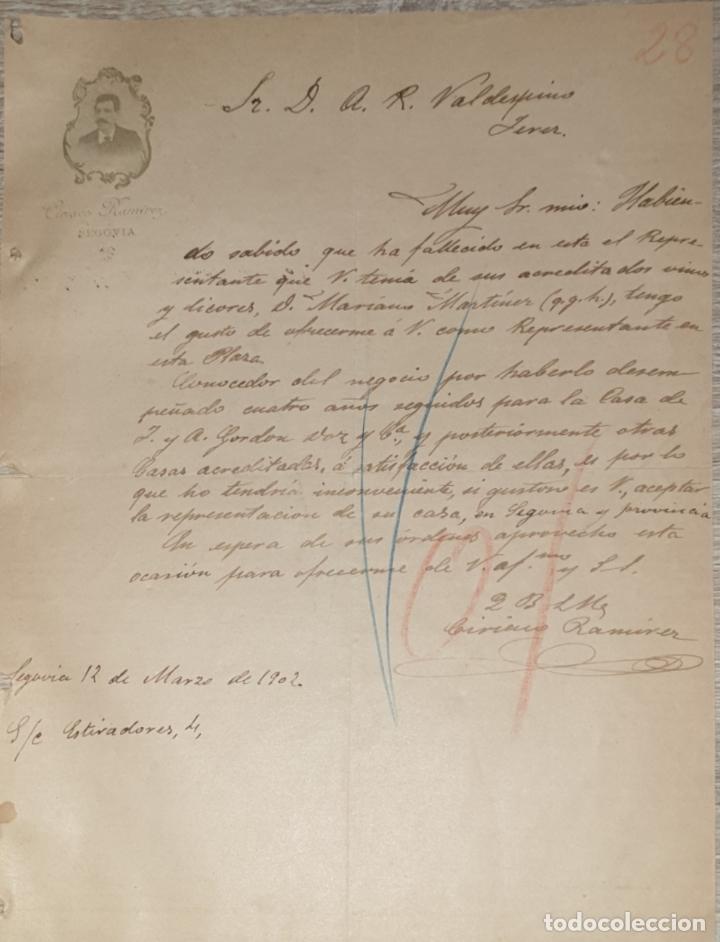 28
Sr. D. A. R. Valdespino
Jerez.
Ciriaco Ramirez
SEGOVIA
Muy Sr. mio: Habien-
do sabido que ha fallecido en esta el Repre-
sentante que V. tenia de sus acreditados vinos
y licores, D. Mariano Martinez (q.g.h.), tengo
el gusto de ofrecerme á V. como Representante en
esta Plaza.
Conocedor del negocio por haberlo desem-
peñado cuatro años seguidos para la Casa de
J. y A. Gordon Doz y Cª, y posteriormente otras
Casas acreditadas, á satisfacción de ellas, es por lo
que no tendria inconveniente, si gustoso es V., aceptar
la representación de su casa, en Segovia y provincia
En espera de sus órdenes aprovecho esta
ocasión para ofrecerme de V. af.mo y S.S.
Q B S M
Ciriaco Ramirez
Segovia 12 de Marzo de 1902.
S/c Estiradores, 4,
todocoleccion